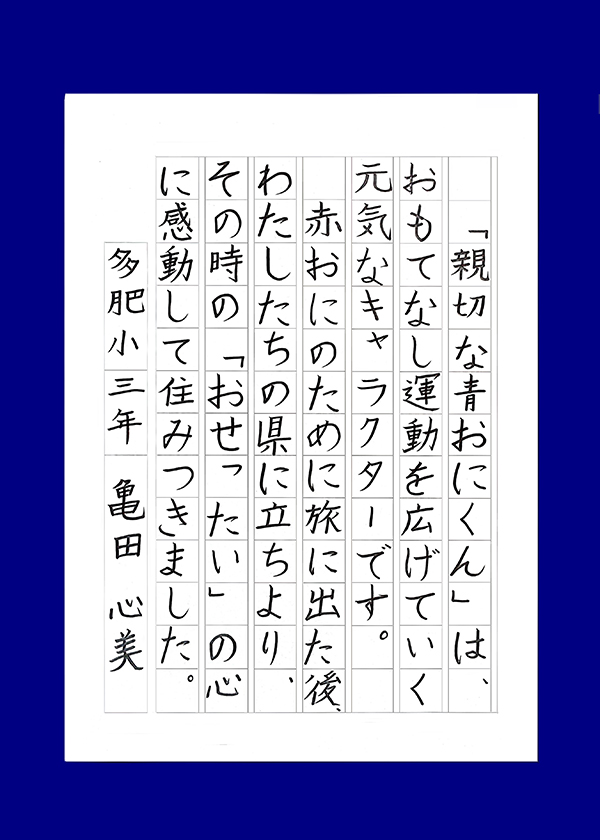 「親切な青おにくん」は、
おもてなし運動を広げていく
元気なキャラクターです。
赤おにのために旅に出た後、
わたしたちの県に立ちより、
その時の「おせったい」の心
に感動して住みつきました。
多肥小三年 亀田 心美